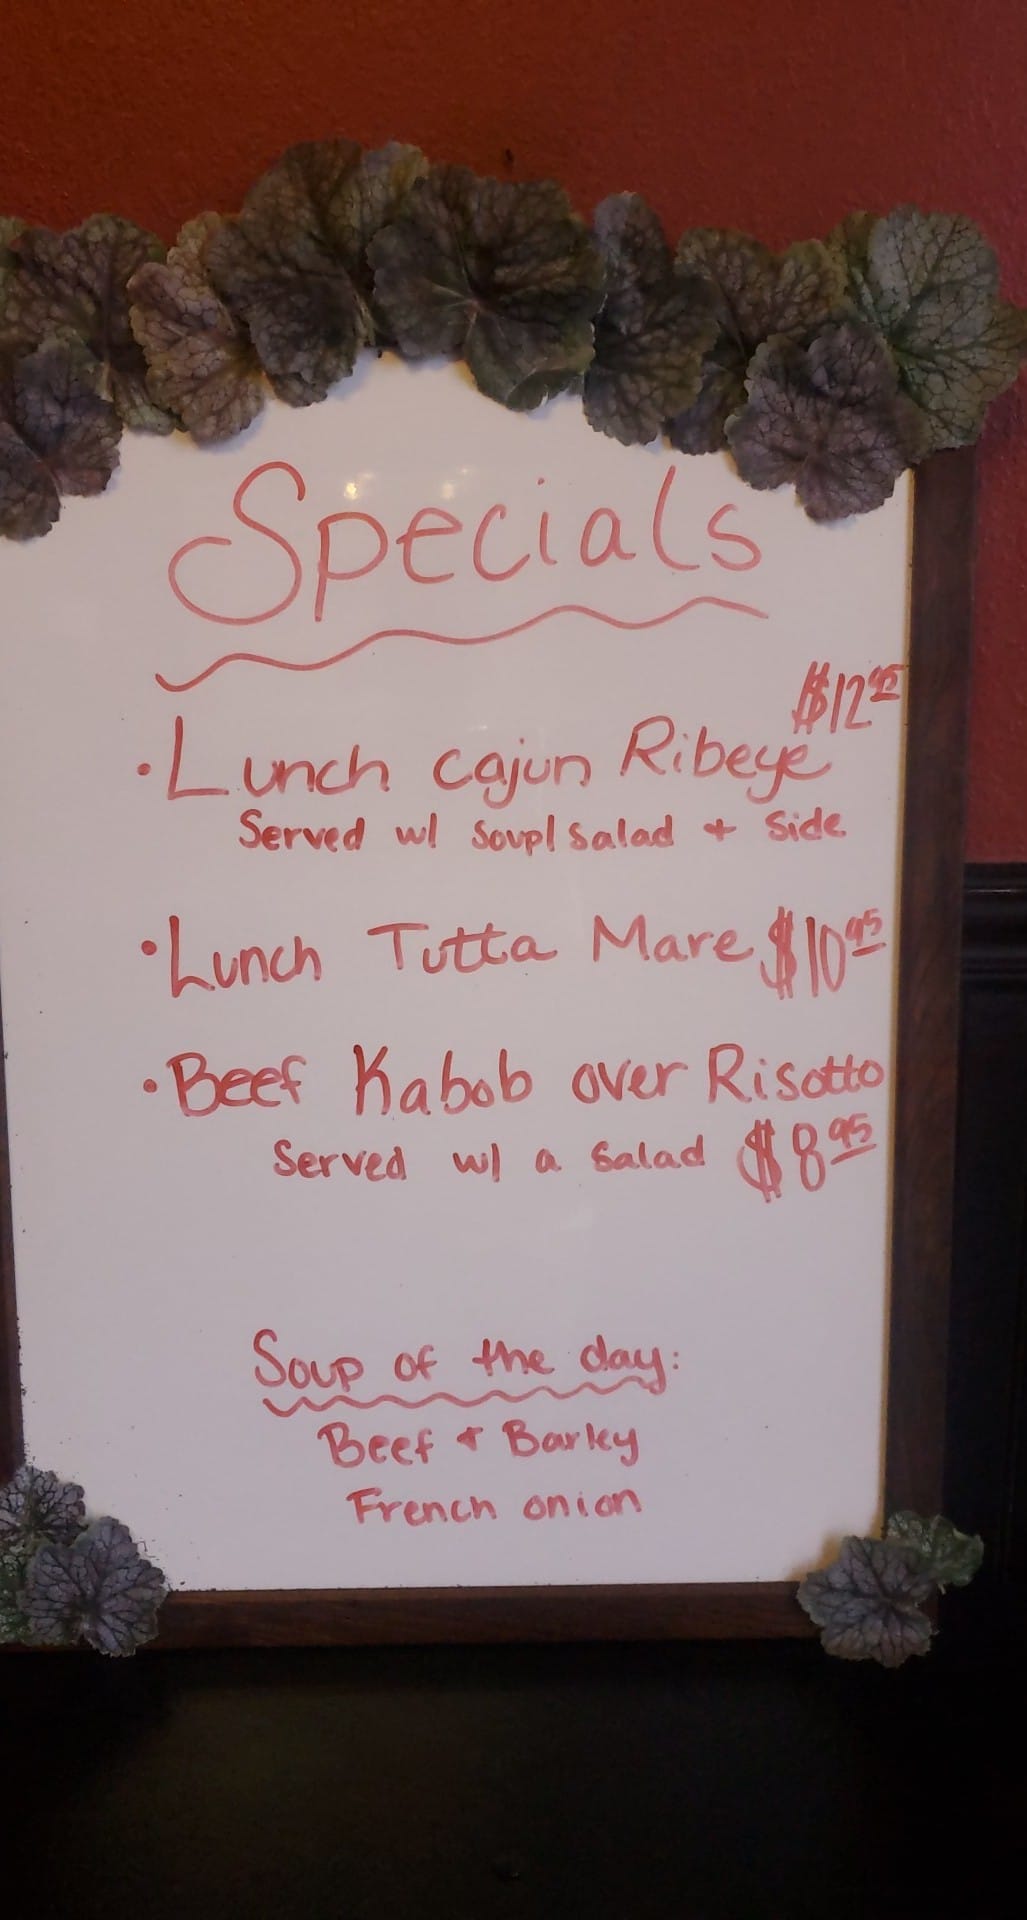 Specials
$12.95
• Lunch cajun Ribeye
Served w/ Soup/Salad + Side
• Lunch Tutta Mare $10.95
• Beef Kabob over Risotto
Served w/ a Salad $8.95
Soup of the day:
Beef + Barley
French onion